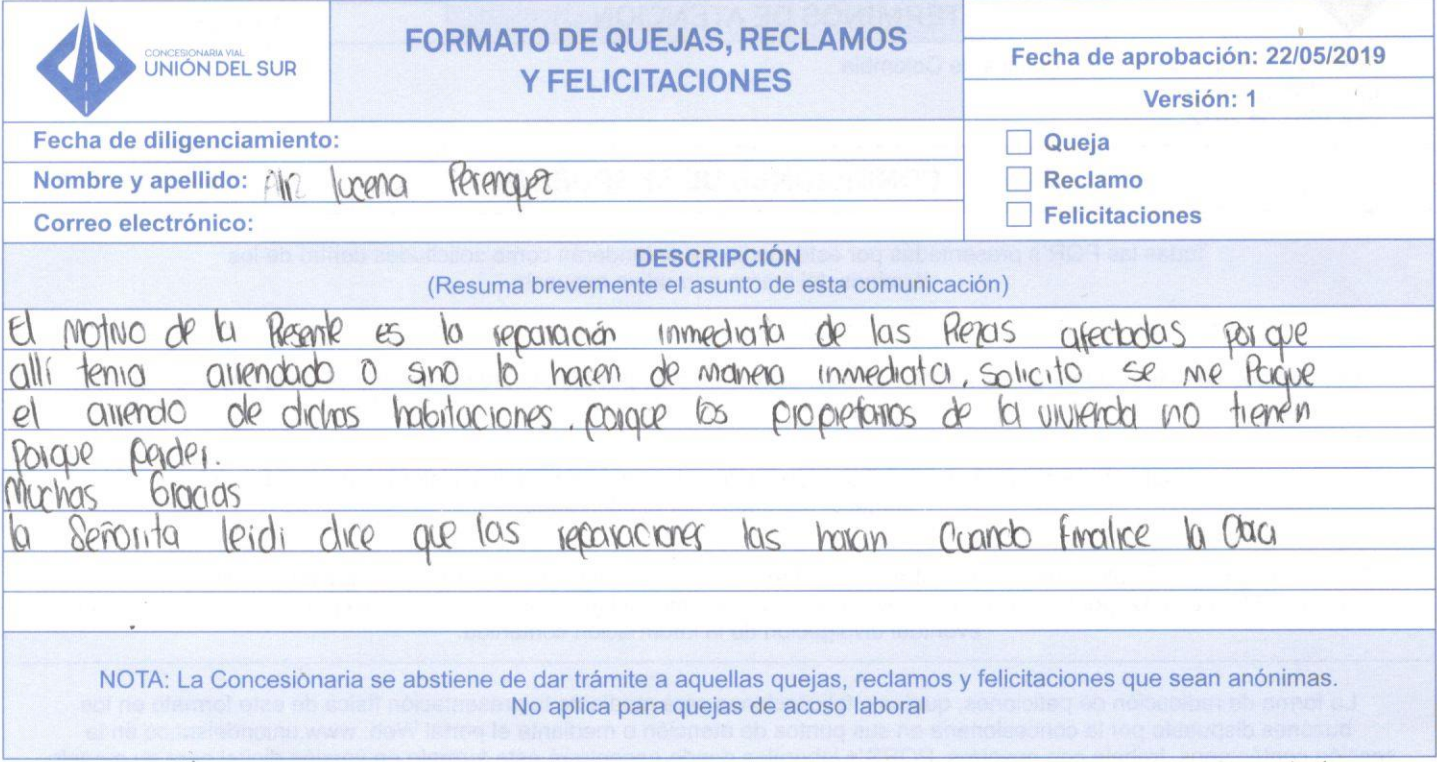 CONCESIONARIA VIAL
UNIÓN DEL SUR
FORMATO DE QUEJAS, RECLAMOS
Y FELICITACIONES
Fecha de aprobación: 22/05/2019
Versión: 1
Fecha de diligenciamiento:
Nombre y apellido: lucena Perenguez
Correo electrónico:
Queja
Reclamo
Felicitaciones
DESCRIPCIÓN
(Resuma brevemente el asunto de esta comunicación)
El motivo de la Resente es la reparación inmediata de las Piezas afectadas por que
allí tenia arrendado o sino lo hacen de manera inmediata, solicito se me Pague
el arriendo de dichas habitaciones. porque los propietarios de la vivienda no tienen
Porque perder.
Muchas Gracias
la Señorita leidi dice que las reparaciones las haran Cuando finalice la Obra
NOTA: La Concesionaria se abstiene de dar trámite a aquellas quejas, reclamos y felicitaciones que sean anónimas.
No aplica para quejas de acoso laboral